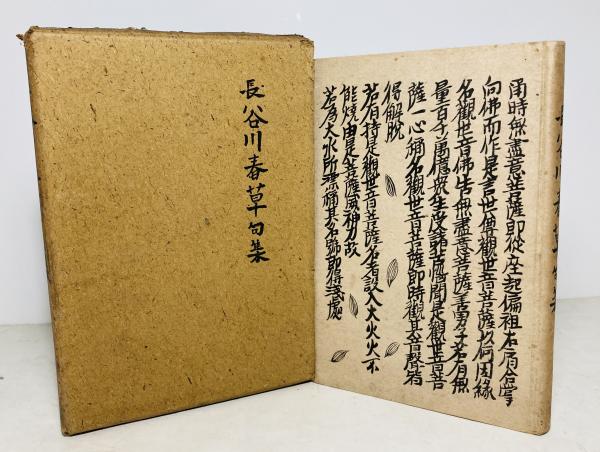 長谷川春草句集
爾時無盡意菩薩即從座起偏袒右肩合掌
向佛而作是言世尊觀世音菩薩以何因緣
名觀世音佛告無盡意菩薩善男子若有無
量百千萬億衆生受諸苦惱聞是觀世音菩
薩一心稱名觀世音菩薩即時觀其音聲皆
得解脫
若有持是觀世音菩薩名者設入大火火不
能燒由是菩薩威神力故
若為大水所漂稱其名號即得淺處
長谷川春草句集